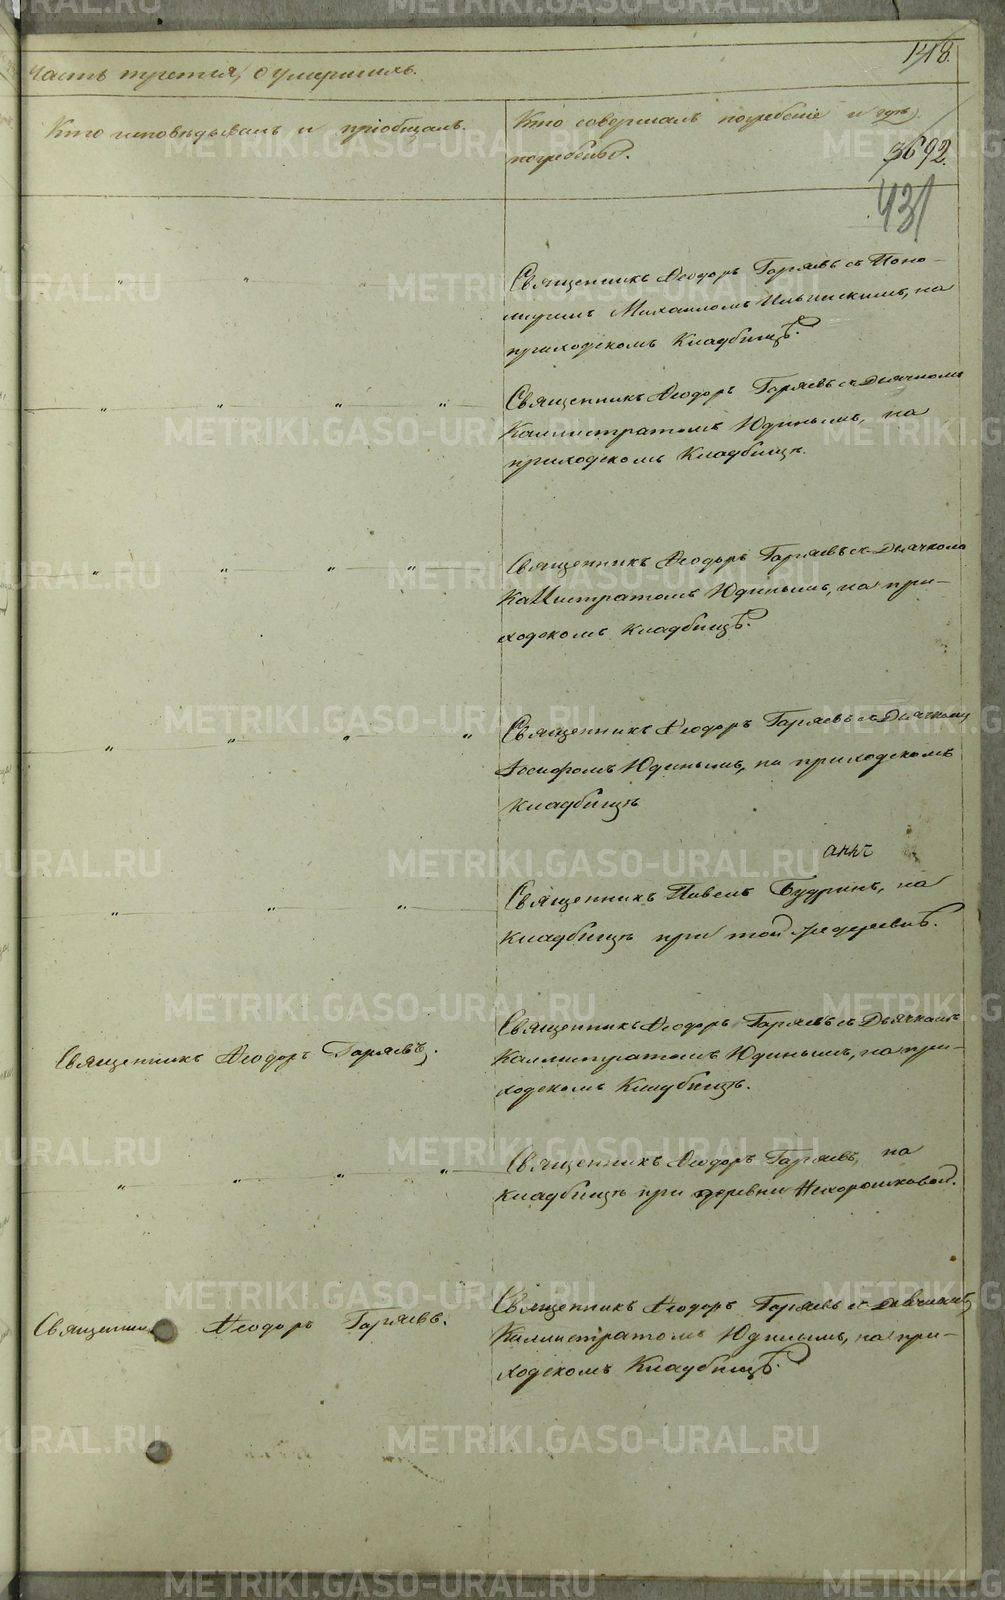 148.
Часть третія, о умершихъ.
Кто исповѣдывалъ и пріобщалъ.
Кто совершалъ погребеніе и гдѣ
погребены.
3692.
431
Священникъ Ѳеодоръ Гаряевъ съ Поно-
маремъ Михаиломъ Ильинскимъ, на
приходскомъ Кладбищѣ.
Священникъ Ѳеодоръ Гаряевъ съ Дьячкомъ
Каллистратомъ Юдинымъ, на
приходскомъ Кладбищѣ.
Священникъ Ѳеодоръ Гаряевъ съ Дьячкомъ
Каллистратомъ Юдинымъ, на при-
ходскомъ Кладбищѣ.
Священникъ Ѳеодоръ Гаряевъ съ Дьячкомъ
Іосифомъ Юдинымъ, на приходскомъ
Кладбищѣ
Священникъ Павелъ Будринъ, на
Кладбищѣ при той же деревнѣ.
Священникъ Ѳеодоръ Гаряевъ.
Священникъ Ѳеодоръ Гаряевъ съ Дьячкомъ
Каллистратомъ Юдинымъ, на при-
ходскомъ Кладбищѣ.
Священникъ Ѳеодоръ Гаряевъ, на
Кладбищѣ при деревни Нехорошковой.
Священник Ѳеодоръ Гаряевъ.
Священникъ Ѳеодоръ Гаряевъ съ Дьячкомъ
Каллистратомъ Юдинымъ, на при-
ходскомъ Кладбищѣ.
METRIKI.GASO-URAL.RU